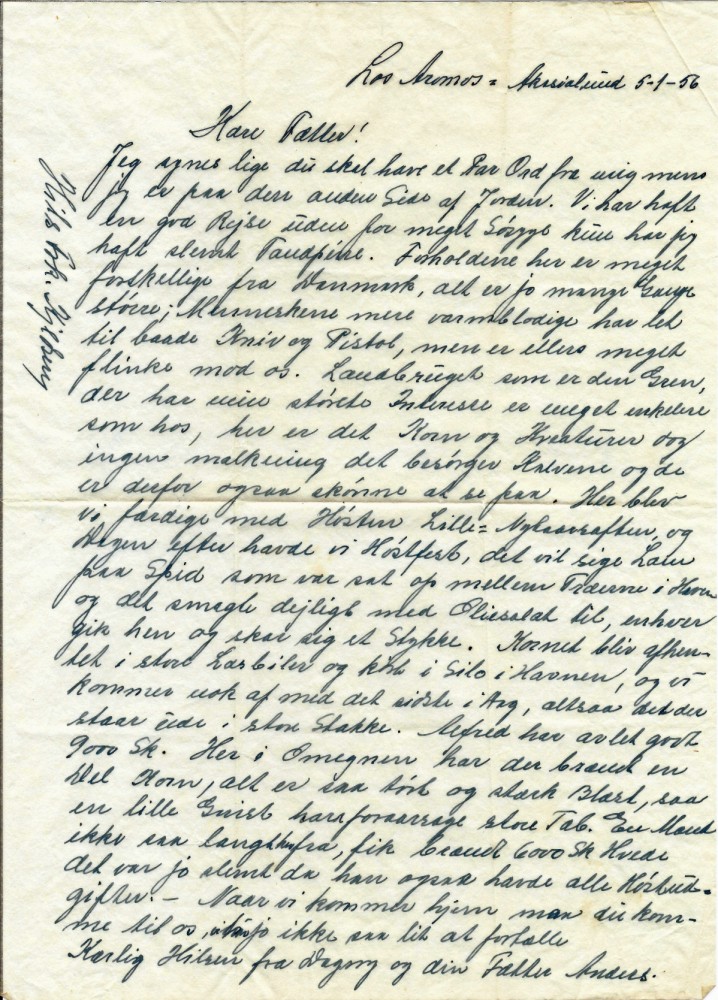 Los Aromos = 5-1-56
Kære Fætter!
Jeg synes lige du skal have et Par Ord fra mig mens
jeg er paa den anden Side af Jorden. Vi har haft
en god Rejse uden for meget Søsyge kun har jeg
haft slemt Tandpine. Forholdene her er meget
forskellige fra Danmark, alt er jo mange Gange
større; Menneskene mere varmblodige har let
til baade Kniv og Pistol, men er ellers meget
flinke mod os. Landbruget som er den Gren,
der har min største Interesse er meget enklere
som hos, her er det Korn og Kreaturer dog
ingen malkning det besørger Kalvene og de
er derfor ogsaa skønne at se paa. Her blev
vi færdige med Høsten Lille=Nytaarsaften, og
Dagen efter havde vi Høstfest, det vil sige Lam
paa Spid som var sat op mellem Træerne i Haven
og det smagte dejligt med Oliesalat til, enhver
gik hen og skar sig et Stykke. Kornet bliv afhen-
tet i store Lastbiler og kørt i Silo i Havnen, og vi
kommer nok af med det sidste i Dag, altsaa det der
staar ude i store Stakke. Alfred har avlet godt
9000 Sk. Her i Omegnen har der brændt en
Del Korn, alt er saa tørt og stærk Blæst, saa
en lille Gnist kan foraarsage store Tab. En Mand
ikke saa langt herfra, fik brændt 6000 Sk Hvede
det var jo slemt da han ogsaa havde alle Høstud=
gifter. – Naar vi kommer hjem maa du kom-
me til os, jo ikke saa lit at fortælle
Kærlig Hilsen fra Dagny og din Fætter Anders.
Niels Erk.